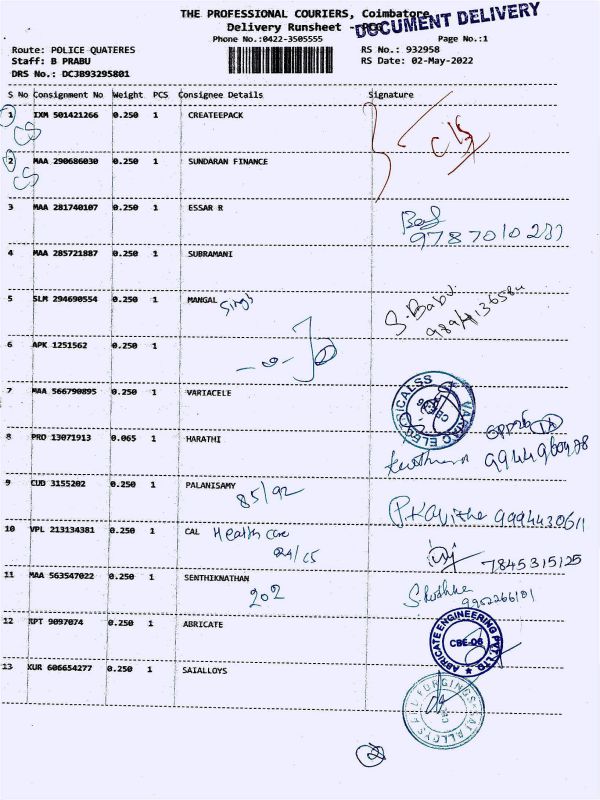 THE PROFESSIONAL COURIERS, Coimbatore
DOCUMENT DELIVERY
Delivery Runsheet - POD
Phone No.:0422-3505555 Page No.:1
Route: POLICE QUATERES RS No.: 932958
Staff: B PRABU RS Date: 02-May-2022
DRS No.: DCJB93295801
S No Consignment No Weight PCS Consignee Details Signature
1 IXM 501421266 0.250 1 CREATEEPACK
CS
2 MAA 290686030 0.250 1 SUNDARAN FINANCE
CS
3 MAA 281740107 0.250 1 ESSAR R
4 MAA 285721887 0.250 1 SUBRAMANI
5 SLM 294690554 0.250 1 MANGAL Singh S.Babu
6 APK 1251562 0.250 1
7 MAA 566790895 0.250 1 VARIACELE
8 PRO 13071913 0.065 1 HARATHI
9 CUD 3155202 0.250 1 PALANISAMY 85/92 P.Kavitha 9994430611
10 VPL 213134381 0.250 1 CAL Health care
24/65 7845315125
11 MAA 563547022 0.250 1 SENTHIKNATHAN
202
12 RPT 9097074 0.250 1 ABRICATE ABRICATE ENGINEERING PVT. LTD CBE-06
13 KUR 606654277 0.250 1 SAIALLOYS
2